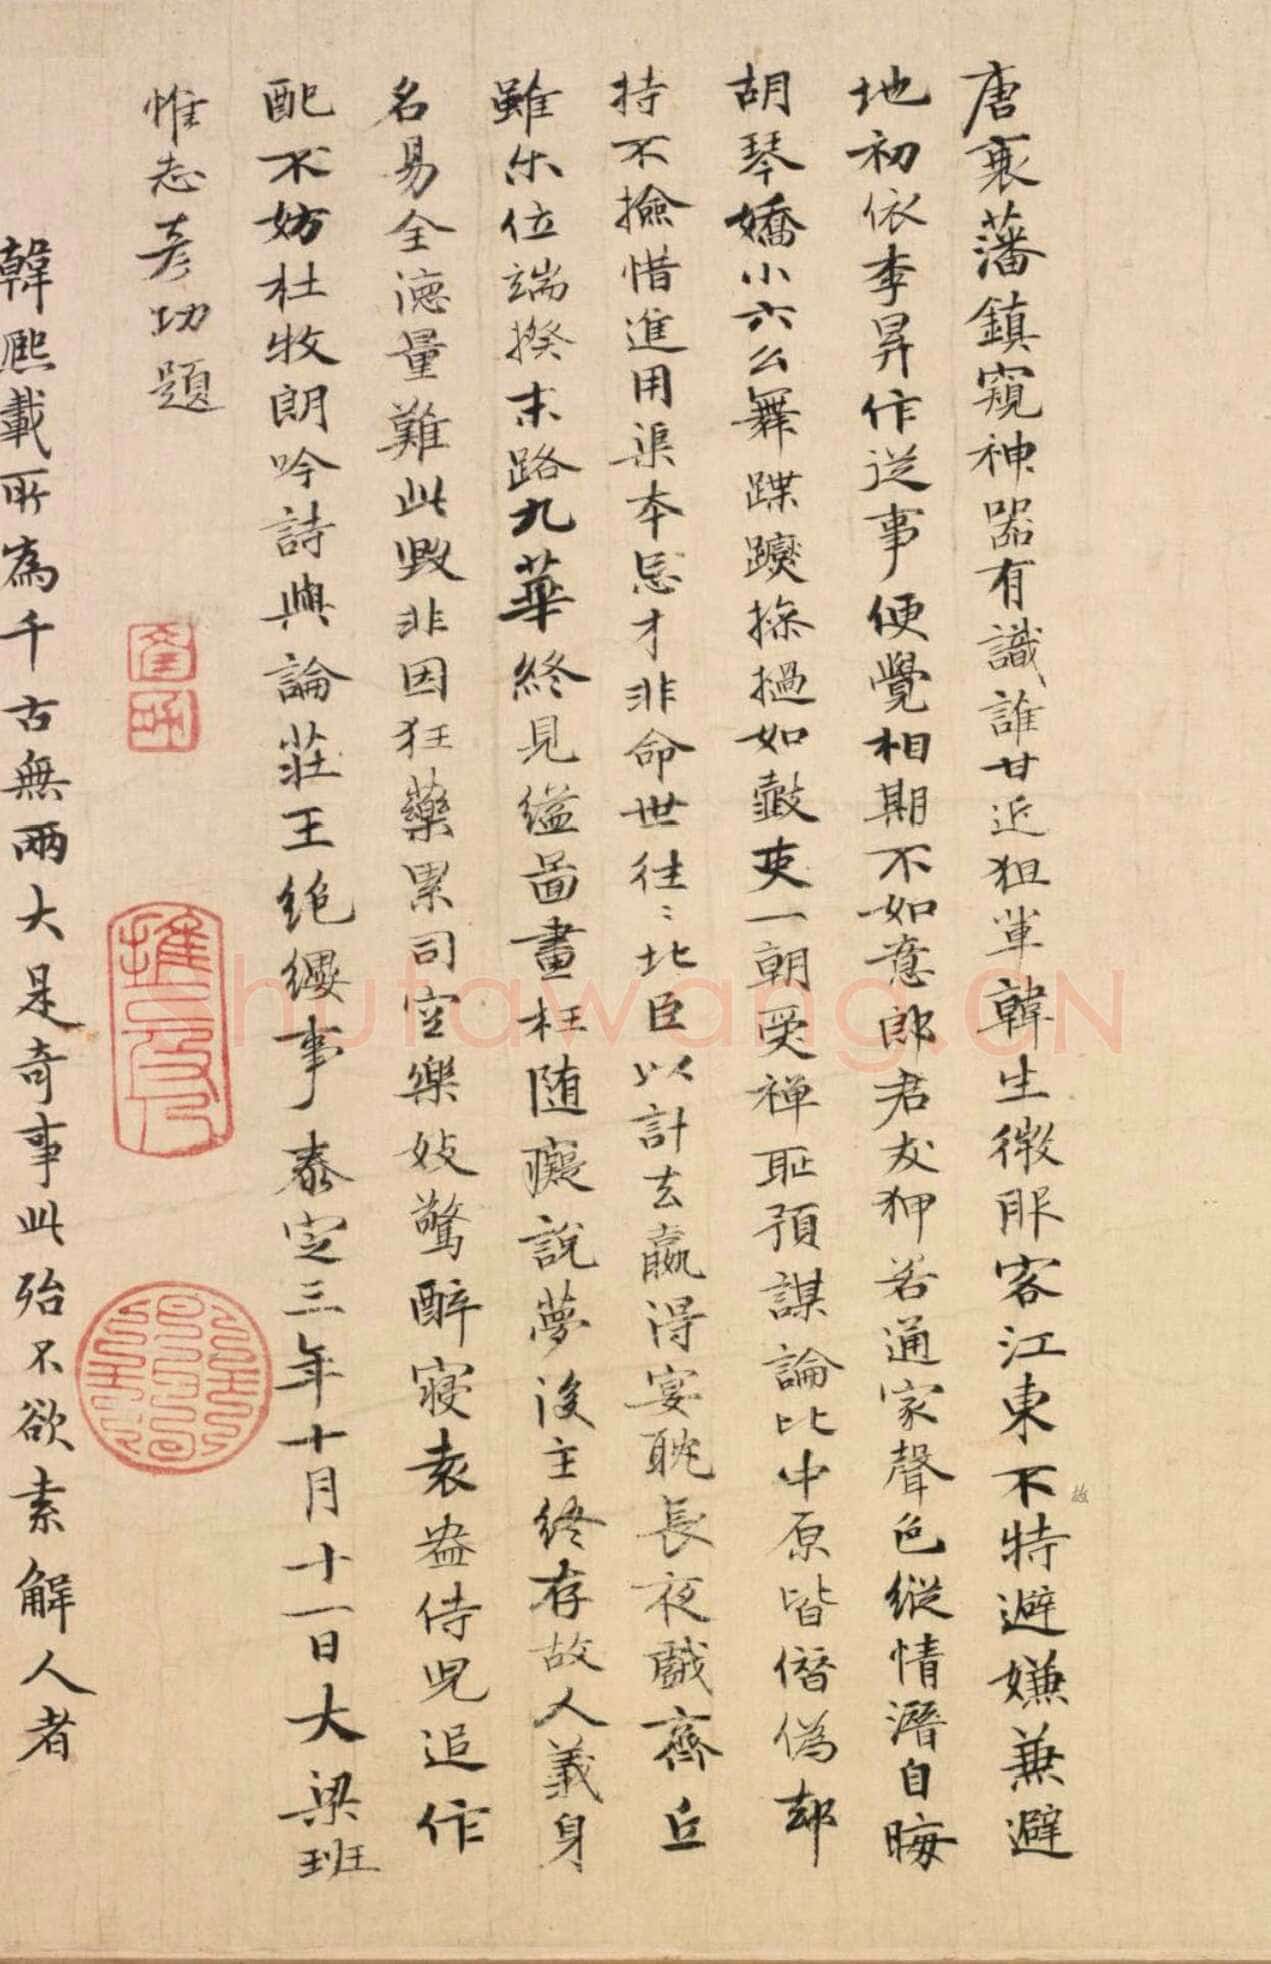 唐衰藩鎮窺神器有識誰甘近狙輩韓生微服客江東不特避嫌兼避
故
地初依李昪作逆事便覺相期不如意郎君友狎若通家聲色縱情潛自晦
胡琴嬌小六么舞蹀躞摻撾如鼓吏一朝受禪恥預謀論比中原皆僭偽却
持不撿惜進用渠本忌才非命世往〻北臣以計去贏得宴耽長夜戲齊丘
雖尔位端揆末路九華終見縊圖畫枉随癡說夢後主終存故人義身
名易全德量難此毀非因狂藥累司空樂妓驚醉寢袁盎侍兒追作
配不妨杜牧朗吟詩與論莊王绝纓事泰定三年十月十一日大梁班
惟志彥功題
韓熙載所為千古無兩大是奇事此殆不欲素解人者
shufawang.CN